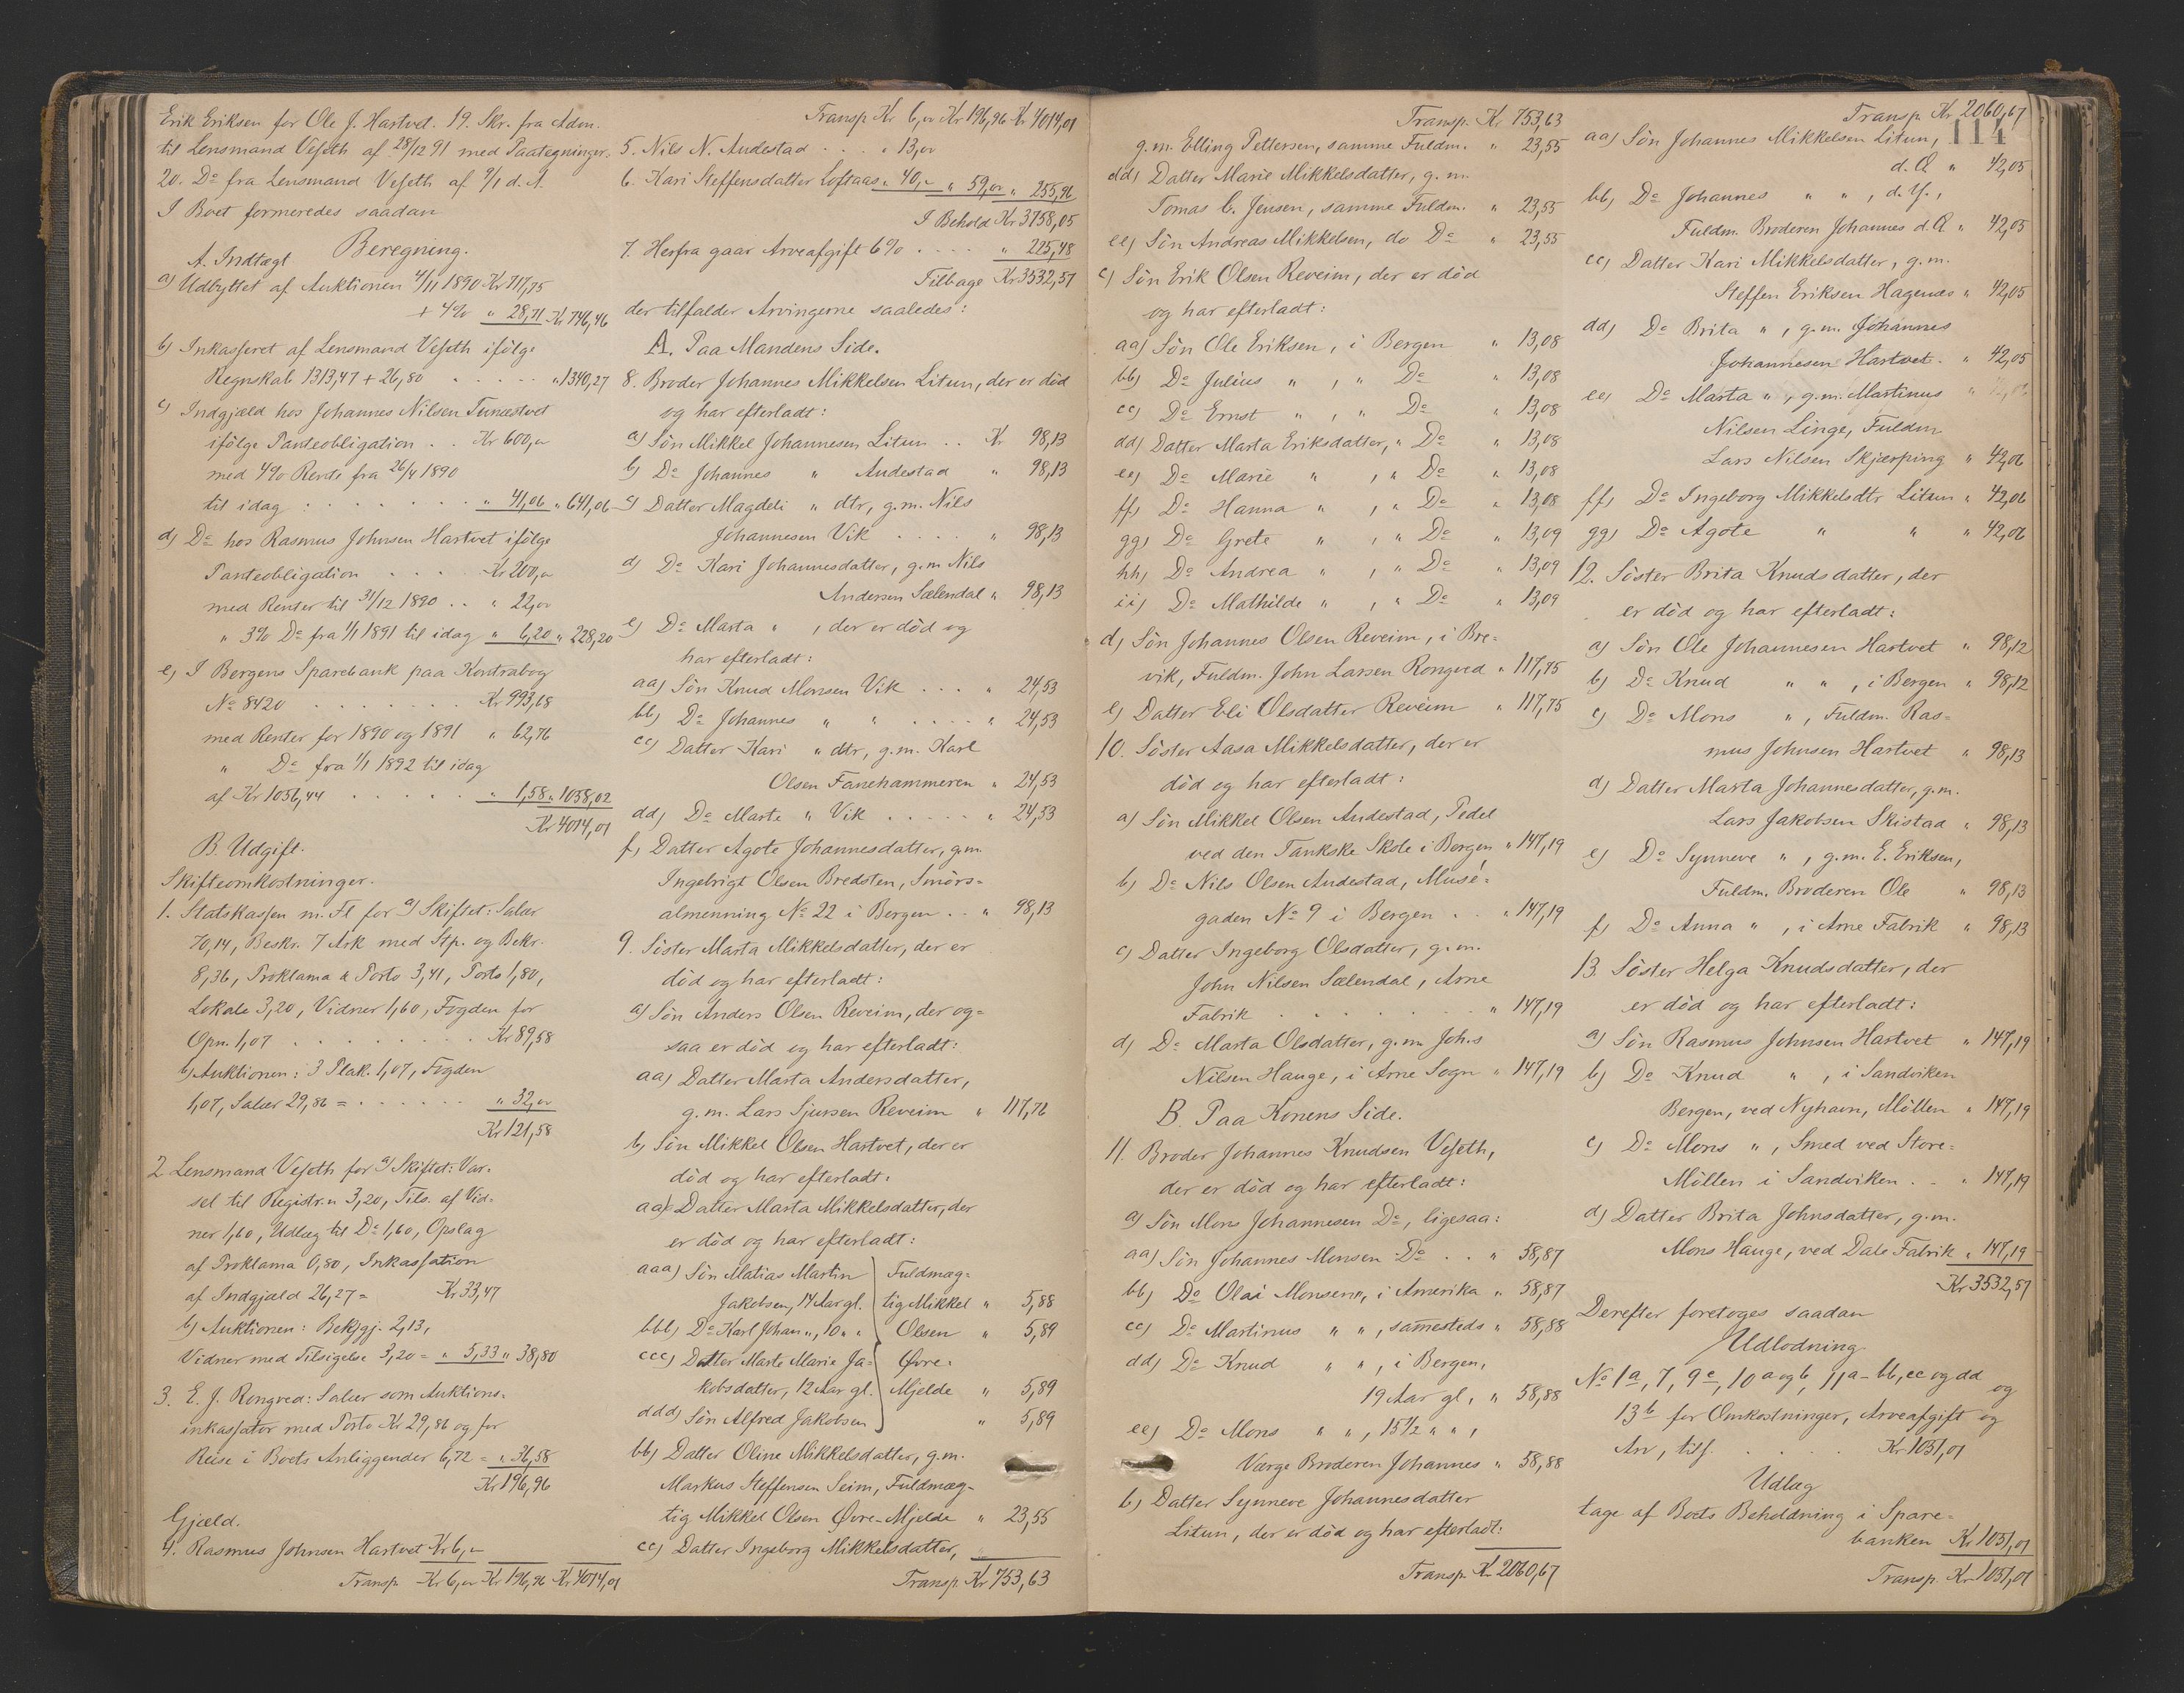 Erik Eriksen for Ole J. Hartvet. 19. Skr. fra Adm.
til Lensmand Veseth af 28/12 91 med Paategninger.
20. Do fra Lensmand Veseth af 9/1 d. A.
I Boet formeredes saadan
Beregning.
A. Indtægt
a) Udbyttet af Auktionen 4/11 1890 Kr 717,75
+ 4% " 28,71 Kr 746,46
b) Inkasseret af Lensmand Veseth ifölge
Regnskab 1313,47 + 26,80 . . . . . " 1340,27
c) Indgjæld hos Johannes Nilsen Tunæstvet
ifölge Panteobligation . . Kr 600,"
med 4% Rente fra 26/4 1890
til idag . . . . . . " 41,06 " 641,06
d) Do hos Rasmus Johnsen Hartvet ifölge
Panteobligation . . . . Kr 200,"
med Renter til 31/12 1890 . . " 22,00
" 3% Do fra 1/1 1891 til idag " 6,20 " 228,20
e) I Bergens Sparebank paa Kontrabog
No 8420 . . . . . . . Kr 993,68
med Renter for 1890 og 1891 " 62,76
" Do fra 1/1 1892 til idag
af Kr 1056,44 . . . . . " 1,58 " 1058,02
Kr 4014,01
B. Udgift.
Skifteomkostninger.
1. Statskassen m. Fl for a) Skiftet: Salær
70,14, Beskr. 7 Ark med Stp. og Bekr.
8,36, Proklama & Porto 3,41, Porto 1,80,
Lokale 3,20, Vidner 1,60, Fogden for
Opn. 1,07 . . . . . . . . . Kr 89,58
b) Auktionen: 3 Plak. 1,07, Fogden
1,07, Salær 29,86 = . . . . . . " 32,00
Kr 121,58
2 Lensmand Veseth for a) Skiftet: Var-
sel til Registr.n 3,20, Tils. af Vid-
ner 1,60, Udlæg til Do 1,60, Opslag
af Proklama 0,80, Inkassation
af Indgjæld 26,27 = Kr 33,47
b) Auktionen: Bekjgj. 2,13,
Vidner med Tilsigelse 3,20 = " 5,33 " 38,80
3. E. J. Rongved: Salær som Auktions-
inkassator med Porto Kr 29,86 og for
Reise i Boets Anliggender 6,72 = " 36,58
Kr 196,96
Gjæld.
4. Rasmus Johnsen Hartvet Kr 6,"
Transp. Kr 6,00 Kr 196,96 Kr 4014,01
Transp Kr 6,00 Kr 196,96 Kr 4014,01
5. Nils N. Andestad . . . " 13,00
6. Kari Steffensdatter Loftaas " 40,00 " 59,00 " 255,96
I Behold Kr 3758,05
7. Herfra gaar Arveafgift 6% . . . . " 225,48
Tilbage Kr 3532,57
der tilfalder Arvingerne saaledes:
A. Paa Mandens Side.
8. Broder Johannes Mikkelsen Litun, der er död
og har efterladt:
a) Sön Mikkel Johannesen Litun . . Kr 98,13
b) Do Johannes " Andestad " 98,13
c) Datter Magdeli " dtr, g.m. Nils
Johannesen Vik . . . . " 98,13
d) Do Kari Johannesdatter, g.m Nils
Andersen Sælendal " 98,13
e) Do Marta " , der er död og
har efterladt:
aa) Sön Knud Monsen Vik . . . " 24,53
bb) Do Johannes " " . . . . " 24,53
cc) Datter Kari " dtr, g.m. Karl
Olsen Fanehammeren " 24,53
dd) Do Marte " Vik . . . . . " 24,53
f) Datter Agote Johannesdatter, g.m.
Ingebrigt Olsen Bredsten, Smörs-
almenning No 22 i Bergen . . " 98,13
9. Söster Marta Mikkelsdatter, der er
död og har efterladt:
a) Sön Anders Olsen Reveim, der og-
saa er död og har efterladt:
aa) Datter Marta Andersdatter,
g.m. Lars Sjursen Reveim " 117,76
b) Sön Mikkel Olsen Hartvet, der er
död og har efterladt:
aa) Datter Marta Mikkelsdatter, der
er död og har efterladt:
aaa) Sön Matias Martin Fuldmæg-
Jakobsen, 14 Aar gl. tig Mikkel " 5,88
bbb) Do Karl Johan ", 10 " " Olsen " 5,89
ccc) Datter Marte Marie Ja- Øvre-
kobsdatter, 12 Aar gl. Mjelde " 5,89
ddd) Sön Alfred Jakobsen " 5,89
bb) Datter Oline Mikkelsdatter, g.m.
Markus Steffensen Seim, Fuldmæg-
tig Mikkel Olsen Øvre-Mjelde " 23,55
cc) Datter Ingeborg Mikkelsdatter,
Transp. Kr 753,63
Transp. Kr 753,63
g.m. Elling Pettersen, samme Fuldm. " 23,55
dd) Datter Marie Mikkelsdatter, g.m.
Tomas C. Jensen, samme Fuldm. " 23,55
ee) Sön Andreas Mikkelsen, do Do " 23,55
c) Sön Erik Olsen Reveim, der er död
og har efterladt:
aa) Sön Ole Eriksen, i Bergen " 13,08
bb) Do Julius " , " Do " 13,08
cc) Do Ernst " , " Do " 13,08
dd) Datter Marta Eriksdatter, " Do " 13,08
ee) Do Marie " , " Do " 13,08
ff) Do Hanna " , " Do " 13,08
gg) Do Grete " , " Do " 13,09
hh) Do Andrea " , " Do " 13,09
ii) Do Mathilde " , " Do " 13,09
d) Sön Johannes Olsen Reveim, i Bre-
vik, Fuldm. John Larsen Rongved " 117,75
e) Datter Eli Olsdatter Reveim " 117,75
10. Söster Aasa Mikkelsdatter, der er
död og har efterladt:
a) Sön Mikkel Olsen Andestad, Pedel
ved den Tankske Skole i Bergen " 147,19
b) Do Nils Olsen Andestad, Musé-
gaden No 9 i Bergen . . " 147,19
c) Datter Ingeborg Olsdatter, g.m.
John Nilsen Sælendal, Arne
Fabrik . . . . . . . " 147,19
d) Do Marta Olsdatter, g.m. Joh.s
Nilsen Hauge, i Arne Sogn " 147,19
B. Paa Konens Side.
11. Broder Johannes Knudsen Veseth,
der er död og har efterladt:
a) Sön Mons Johannesen Do, ligesaa:
aa) Sön Johannes Monsen Do . . " 58,87
bb) Do Olai Monsen, i Amerika " 58,87
cc) Do Martinus " " , samesteds " 58,88
dd) Do Knud " " , i Bergen,
19 Aar gl, " 58,88
ee) Do Mons " " , 15 1/2 " " ,
Værge Broderen Johannes " 58,88
b) Datter Synneve Johannesdatter
Litun, der er död og har efterladt:
Transp. Kr 2060,67
Transp. Kr 2060,67
114
aa) Sön Johannes Mikkelsen Litun,
d. Æ " 42,05
bb) Do Johannes " " , d. Y.,
Fuldm. Broderen Johannes d. Æ " 42,05
cc) Datter Kari Mikkelsdatter, g.m.
Steffen Eriksen Hagenæs " 42,05
dd) Do Brita " , g.m. Johannes
Johannesen Hartvet . " 42,05
ee) Do Marta " , g.m. Martinus
Nilsen Linge, Fuldm
Lars Nilsen Skjærping " 42,06
ff) Do Ingeborg Mikkelsdtr Litun " 42,06
gg) Do Agote " " " 42,06
12. Söster Brita Knudsdatter, der
er död og har efterladt:
a) Sön Ole Johannesen Hartvet " 98,12
b) Do Knud " " , i Bergen " 98,12
c) Do Mons " , Fuldm. Ras-
mus Johnsen Hartvet " 98,13
d) Datter Marta Johannesdatter, g.m.
Lars Jakobsen Skistad " 98,13
e) Do Synneve " , g.m. E. Eriksen,
Fuldm. Broderen Ole " 98,13
f) Do Anna " , i Arne Fabrik " 98,13
13. Söster Helga Knudsdatter, der
er död og har efterladt:
a) Sön Rasmus Johnsen Hartvet " 147,19
b) Do Knud " , i Sandviken
Bergen, ved Nyhavn, Möllen " 147,19
c) Do Mons " , Smed ved Store-
Möllen i Sandviken . . " 147,19
d) Datter Brita Johnsdatter, g.m.
Mons Hauge, ved Dale Fabrik " 147,19
Kr 3532,57
Derefter foretoges saadan
Udlodning
No 1a, 7, 9e, 10 a og b, 11a - bb, cc og dd og
13b for Omkostninger, Arveafgift og
Arv, tils. . . . . . Kr 1051,01
Udlæg
tage af Boets Beholdning i Spare-
banken Kr 1051,01
Transp. Kr 1051,01